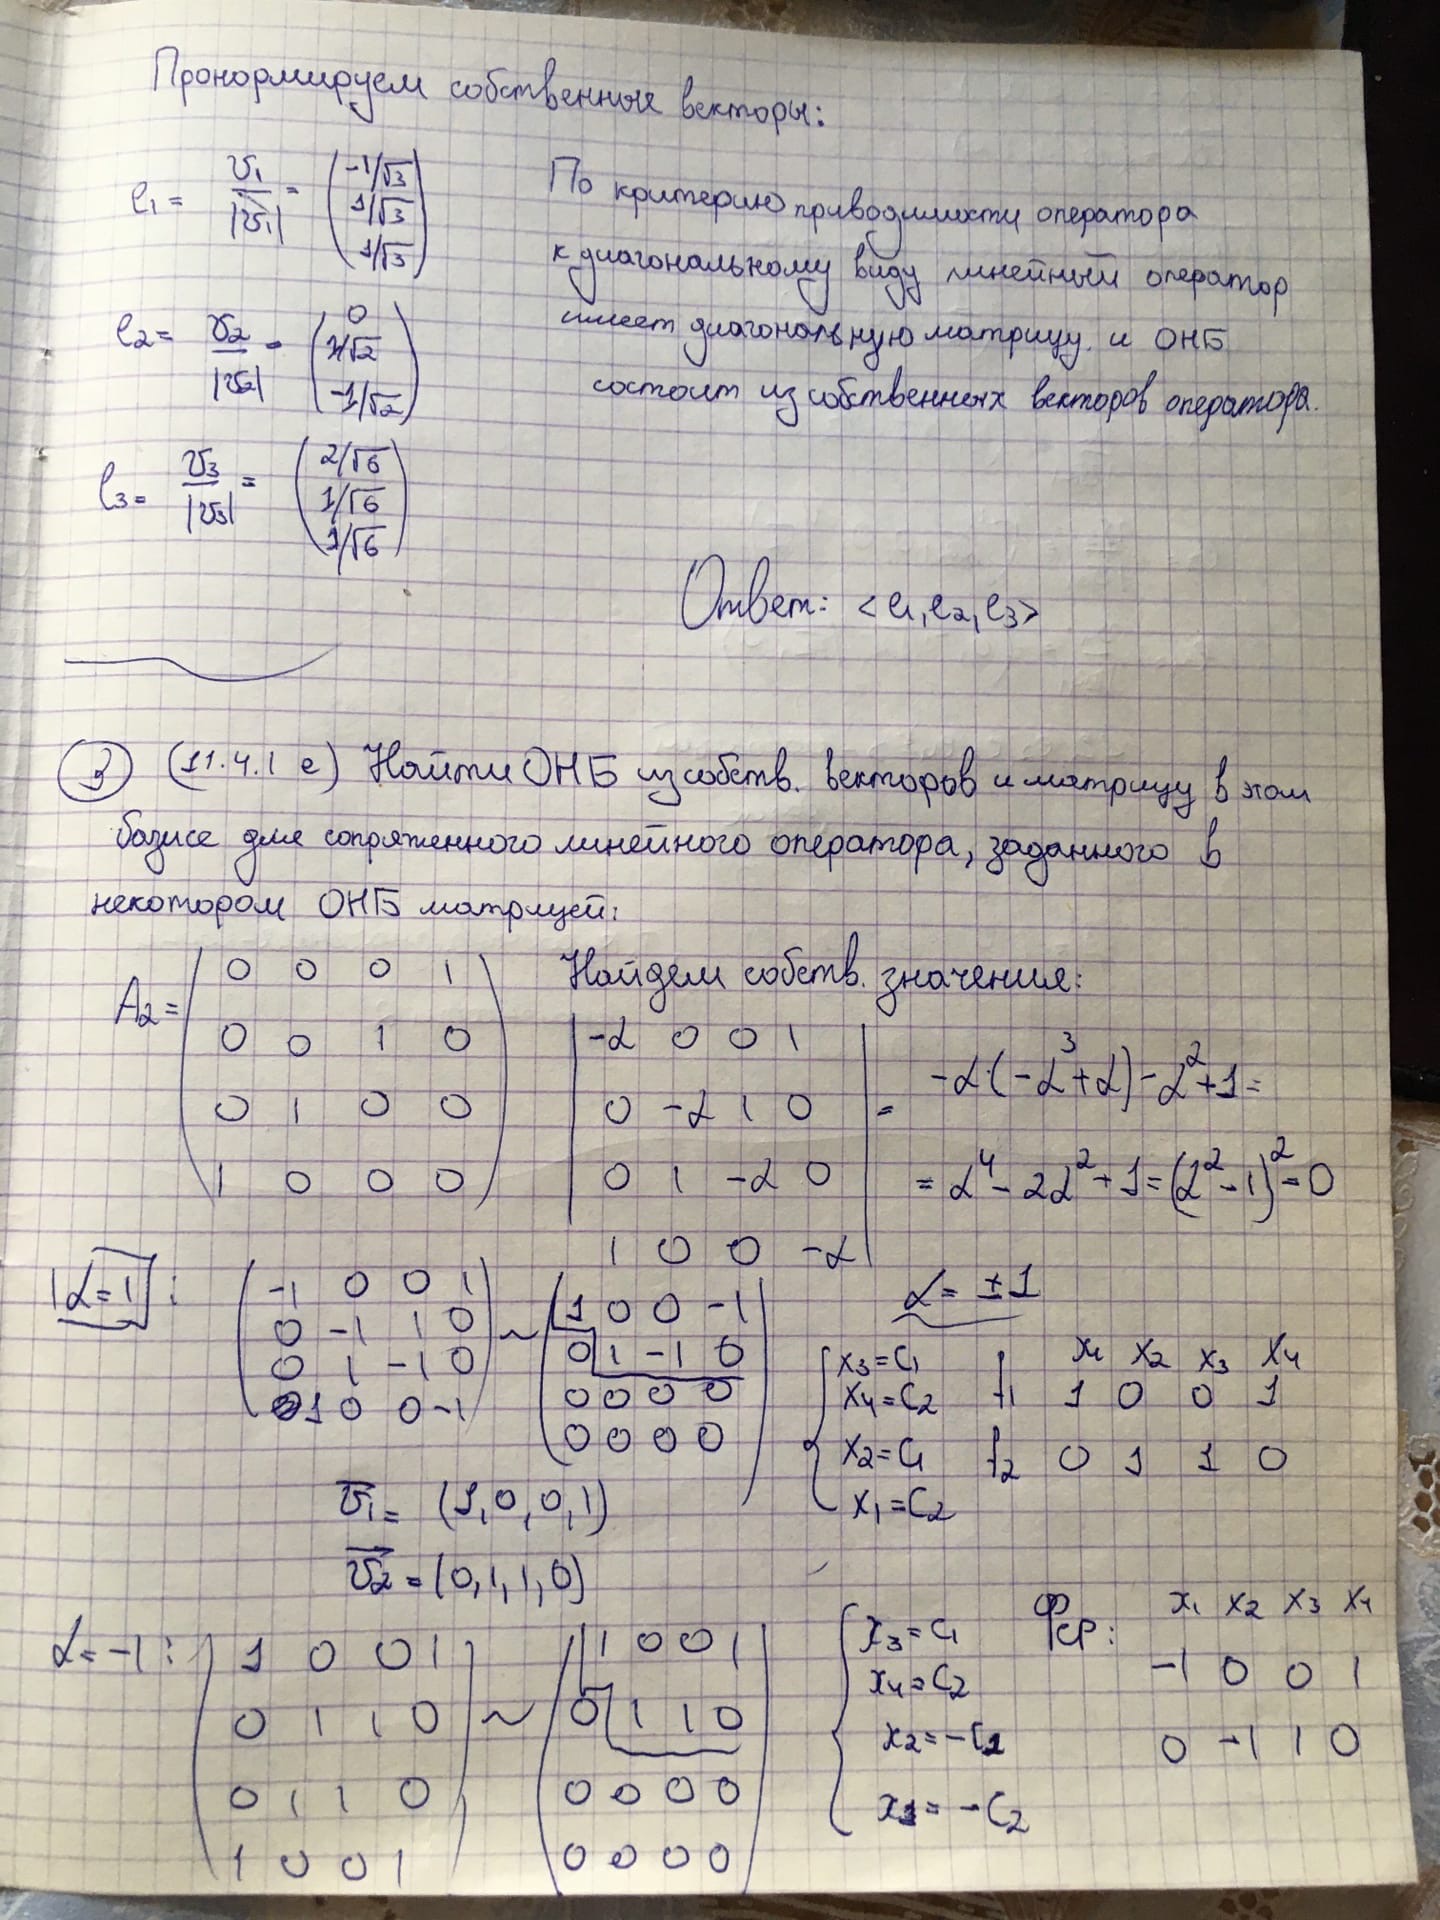 Пронормируем собственные векторы:
e₁ = v₁/|v₁| = (-1/√3, 1/√3, 1/√3)
По критерию приводимости оператора
к диагональному виду линейный оператор
имеет диагональную матрицу и ОНБ
состоит из собственных векторов оператора.
e₂ = v₂/|v₂| = (0, 1/√2, -1/√2)
e₃ = v₃/|v₃| = (2/√6, 1/√6, 1/√6)
Ответ: <e₁, e₂, e₃>
③ (11.4.1 е) Найти ОНБ из собств. векторов и матрицу в этом
базисе для сопряженного линейного оператора, заданного в
некотором ОНБ матрицей:
A₂ =
0 0 0 1
0 0 1 0
0 1 0 0
1 0 0 0
Найдем собств. значения:
-λ 0 0 1
0 -λ 1 0
0 1 -λ 0
1 0 0 -λ
= -λ·(-λ³+λ)-λ²+1=
= λ⁴ - 2λ² + 1 = (λ² - 1)² = 0
λ = ±1
λ=1 :
-1 0 0 1
0 -1 1 0
0 1 -1 0
1 0 0 -1
~
1 0 0 -1
0 1 -1 0
0 0 0 0
0 0 0 0
x₃ = C₁
x₄ = C₂
x₂ = C₁
x₁ = C₂
x₁ x₂ x₃ x₄
f₁ 1 0 0 1
f₂ 0 1 1 0
v₁ = (1, 0, 0, 1)
v₂ = (0, 1, 1, 0)
λ = -1 :
1 0 0 1
0 1 1 0
0 1 1 0
1 0 0 1
~
1 0 0 1
0 1 1 0
0 0 0 0
0 0 0 0
x₃ = C₁
x₄ = C₂
x₂ = -C₁
x₁ = -C₂
ФСР: x₁ x₂ x₃ x₄
-1 0 0 1
0 -1 1 0